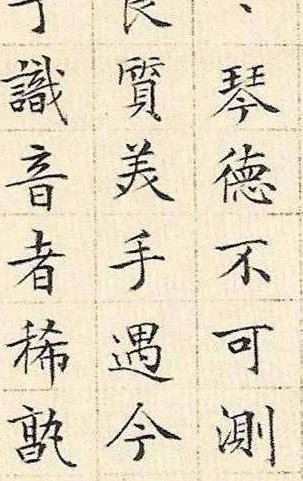 琴德不可測
質美手遇今
識音者稀孰